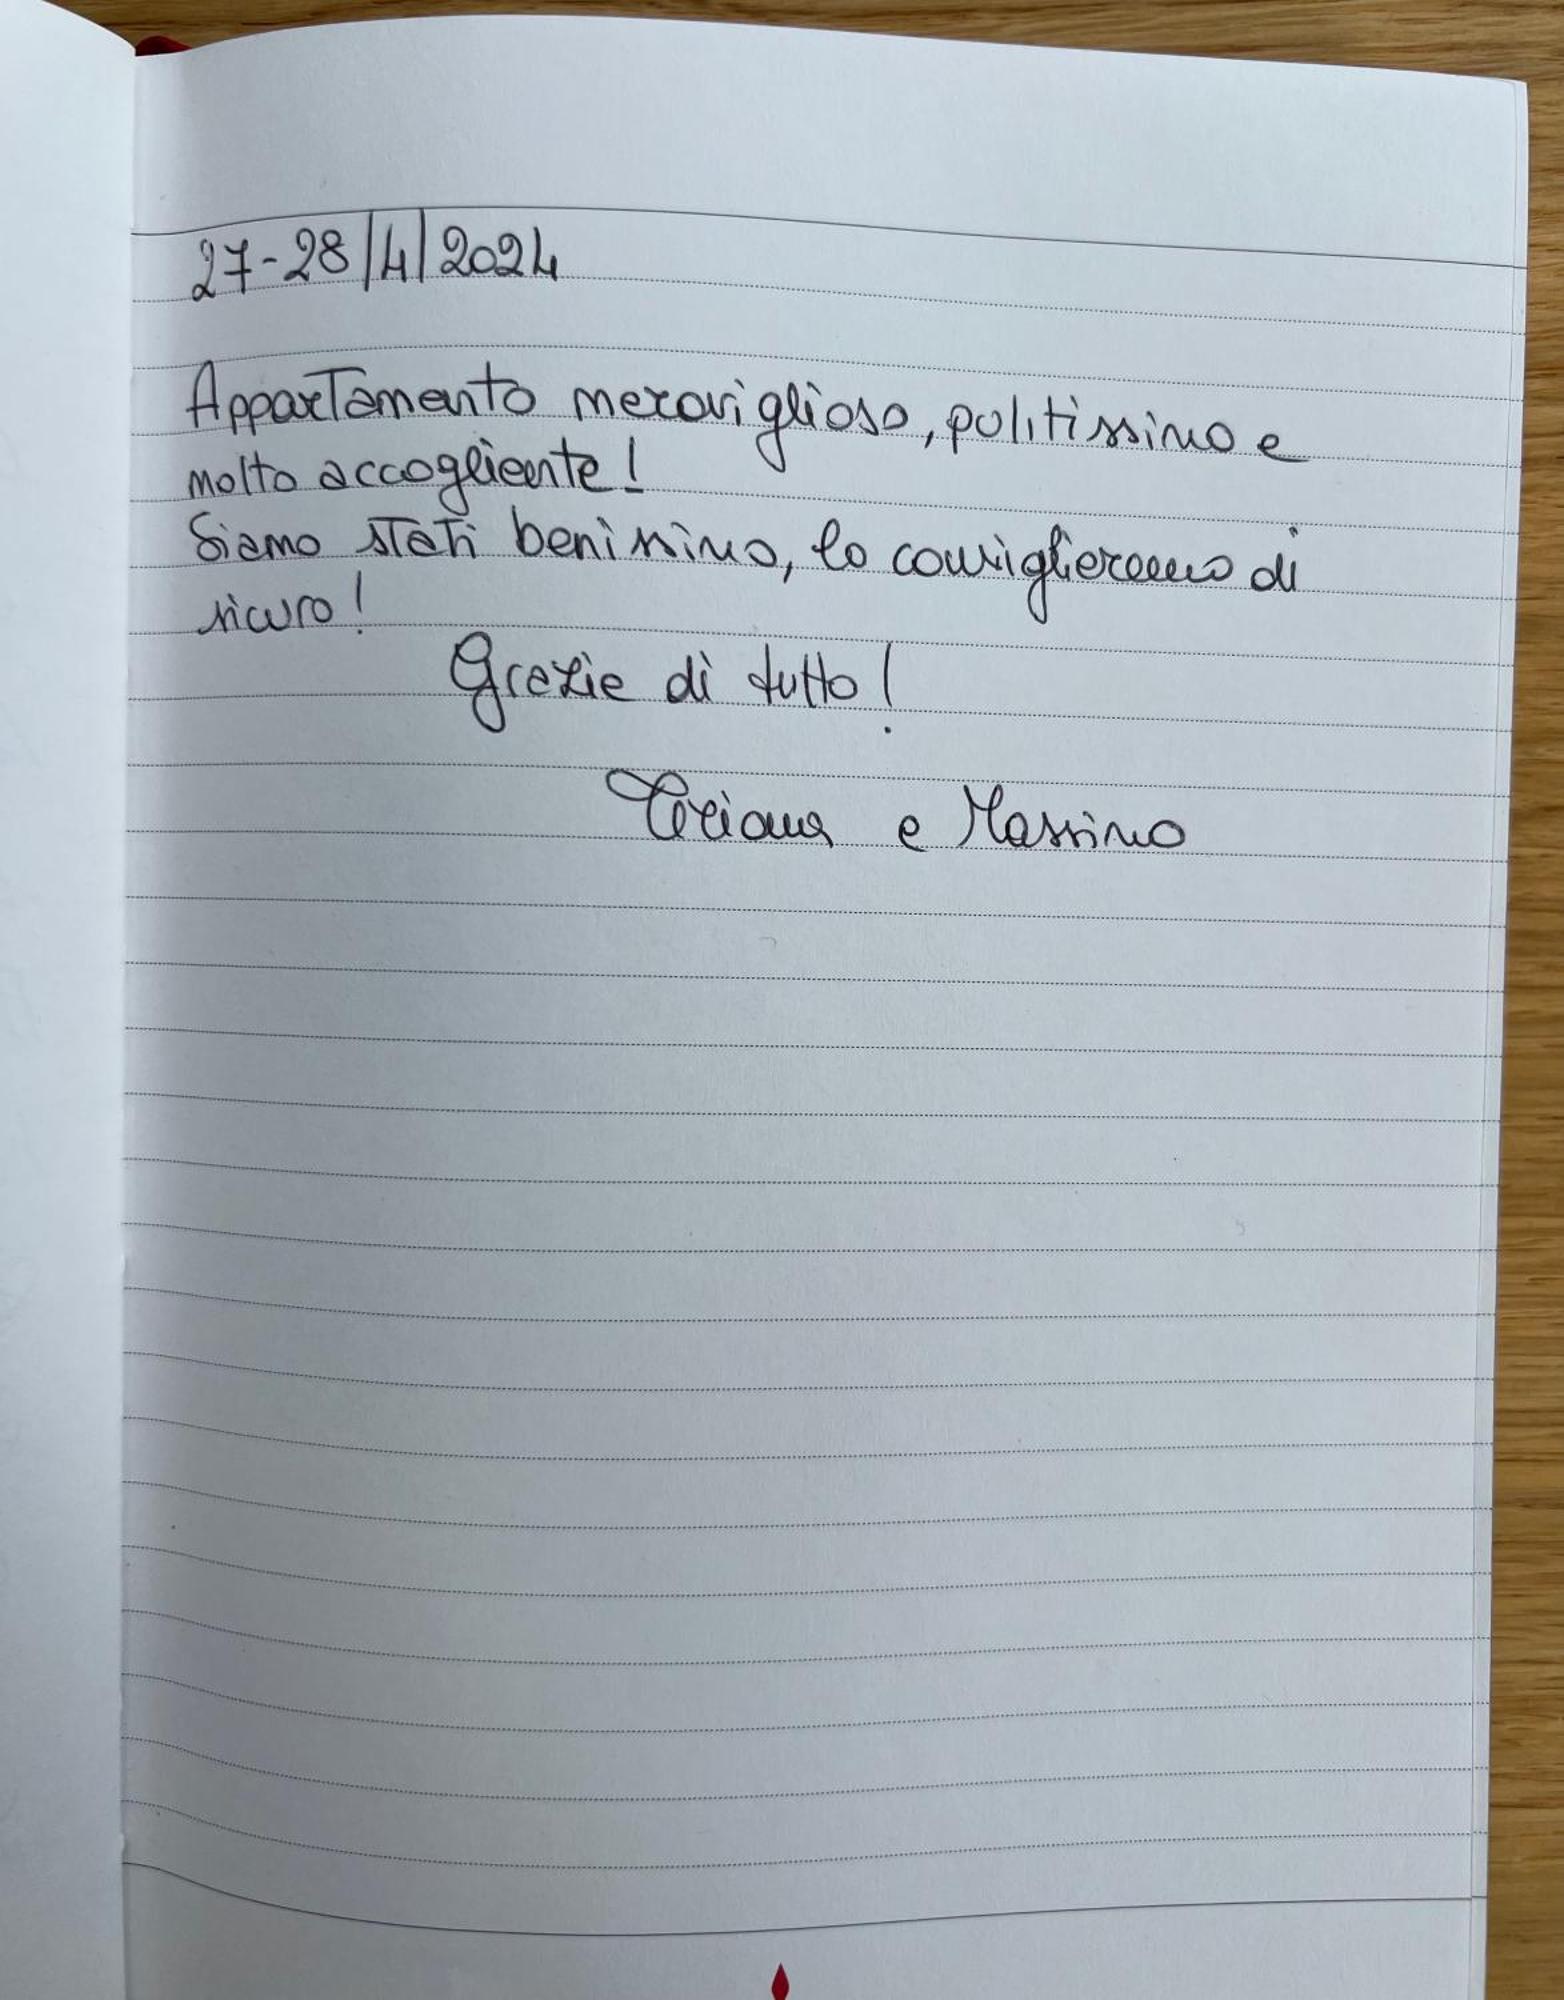 27-28/4/2024
Appartamento meraviglioso, pulitissimo e
molto accogliente!
Siamo stati benissimo, lo consiglieremo di
sicuro!
Grazie di tutto!
Tiziana e Massimo